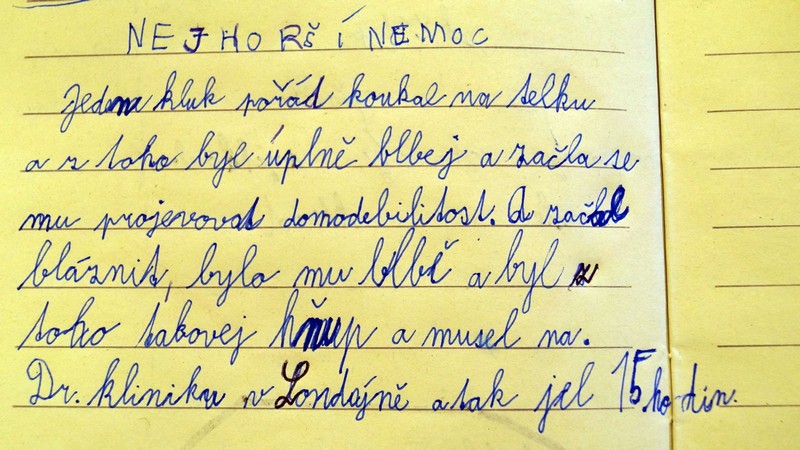 NEJHORŠÍ NEMOC
Jeden kluk pořád koukal na telku
a z toho byl úplně blbej a začla se
mu projevovat domodebilitost. A začal
bláznit, bylo mu blbě a byl z
toho takovej hňup a musel na.
Dr. kliniku v Londájně a tak jel 15 hodin.